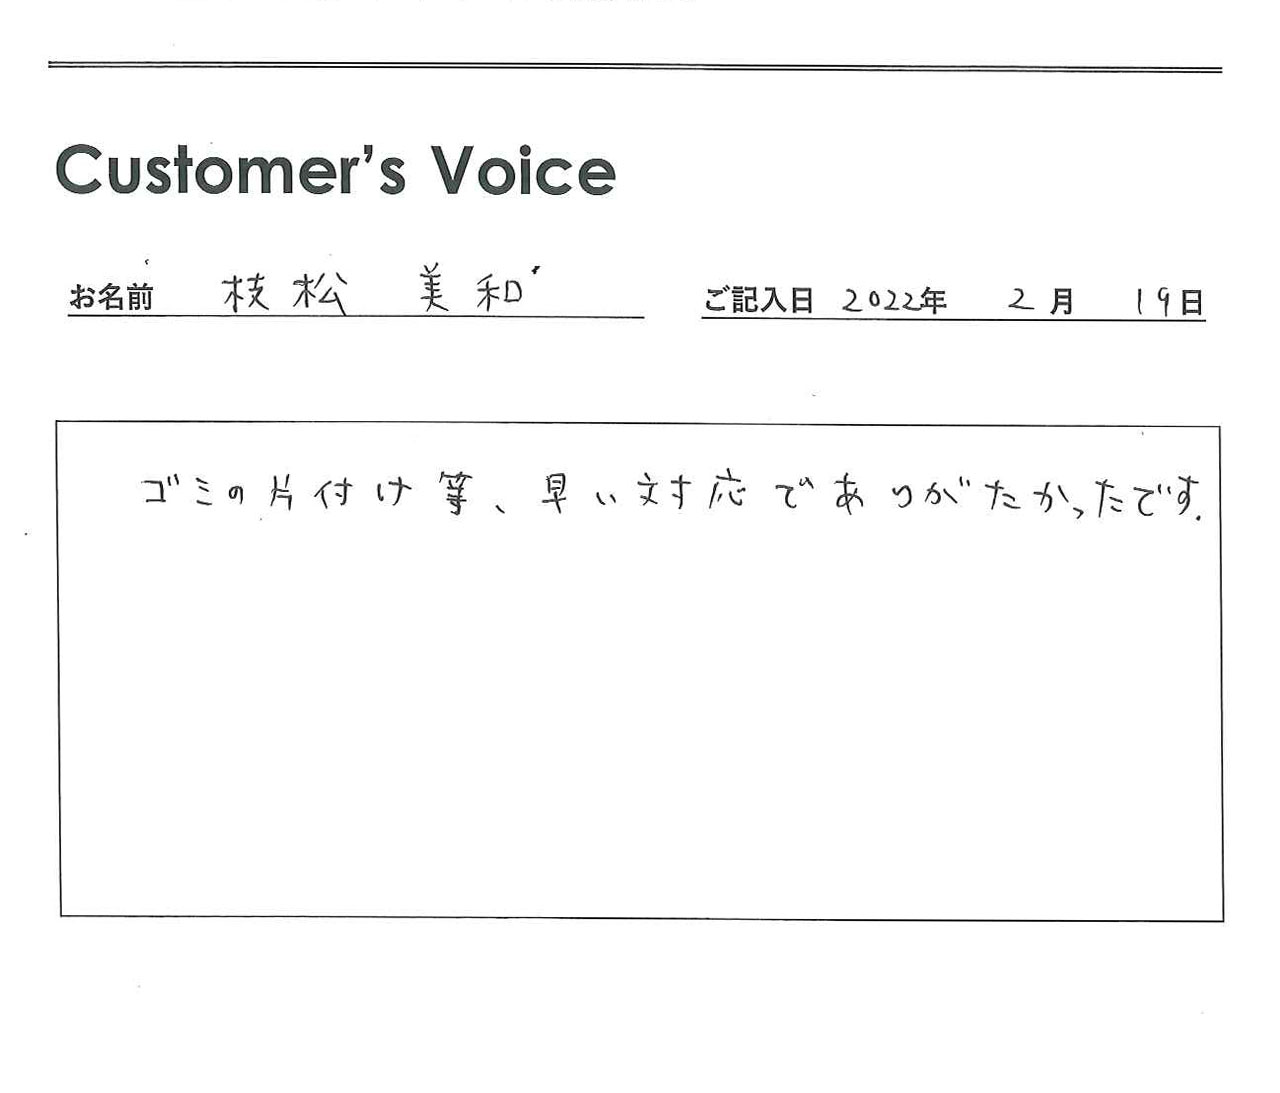 Customer's Voice
お名前 枝松 美和
ご記入日 2022年 2月 19日
ゴミの片付け等、早い対応でありがたかったです.